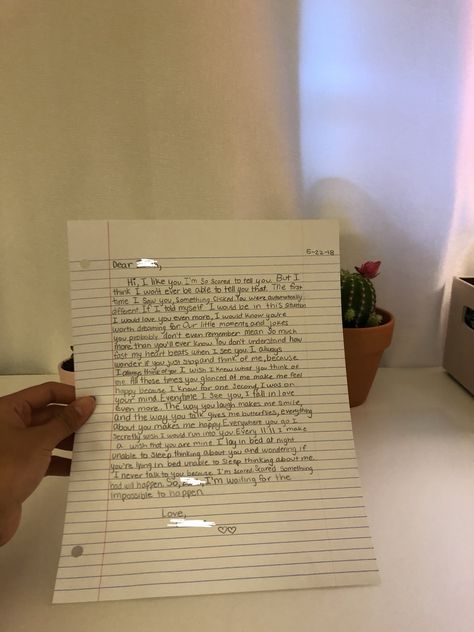 5-22-18
Dear
Hi, I like you. I'm so scared to tell you. But I
think I won't ever be able to tell you that. The first
time I saw you, something clicked. You were automatically
different. If I told myself I would be in this situation
I would love you even more, I would know you're
worth dreaming for. Our little moments and jokes
you probably don't even remember mean so much
more than you'll ever know. You don't understand how
fast my heart beats when I see you. I always
wonder if you just stop and think of me, because
I always think of you. I wish I knew what you think of
me. All those times you glanced at me make me feel
happy because I know for one second, I was on
your mind. Everytime I see you, I fall in love
even more. The way you laugh makes me smile,
and the way you talk gives me butterflies, everything
about you makes me happy. Everywhere you go I
secretly wish I would run into you. Every 11:11 I make
a wish that you are mine. I lay in bed at night
unable to sleep thinking about you and wondering if
you're lying in bed unable to sleep thinking about me.
I never talk to you because, I'm scared. Scared something
bad will happen. So, I'm waiting for the
impossible to happen.
Love,